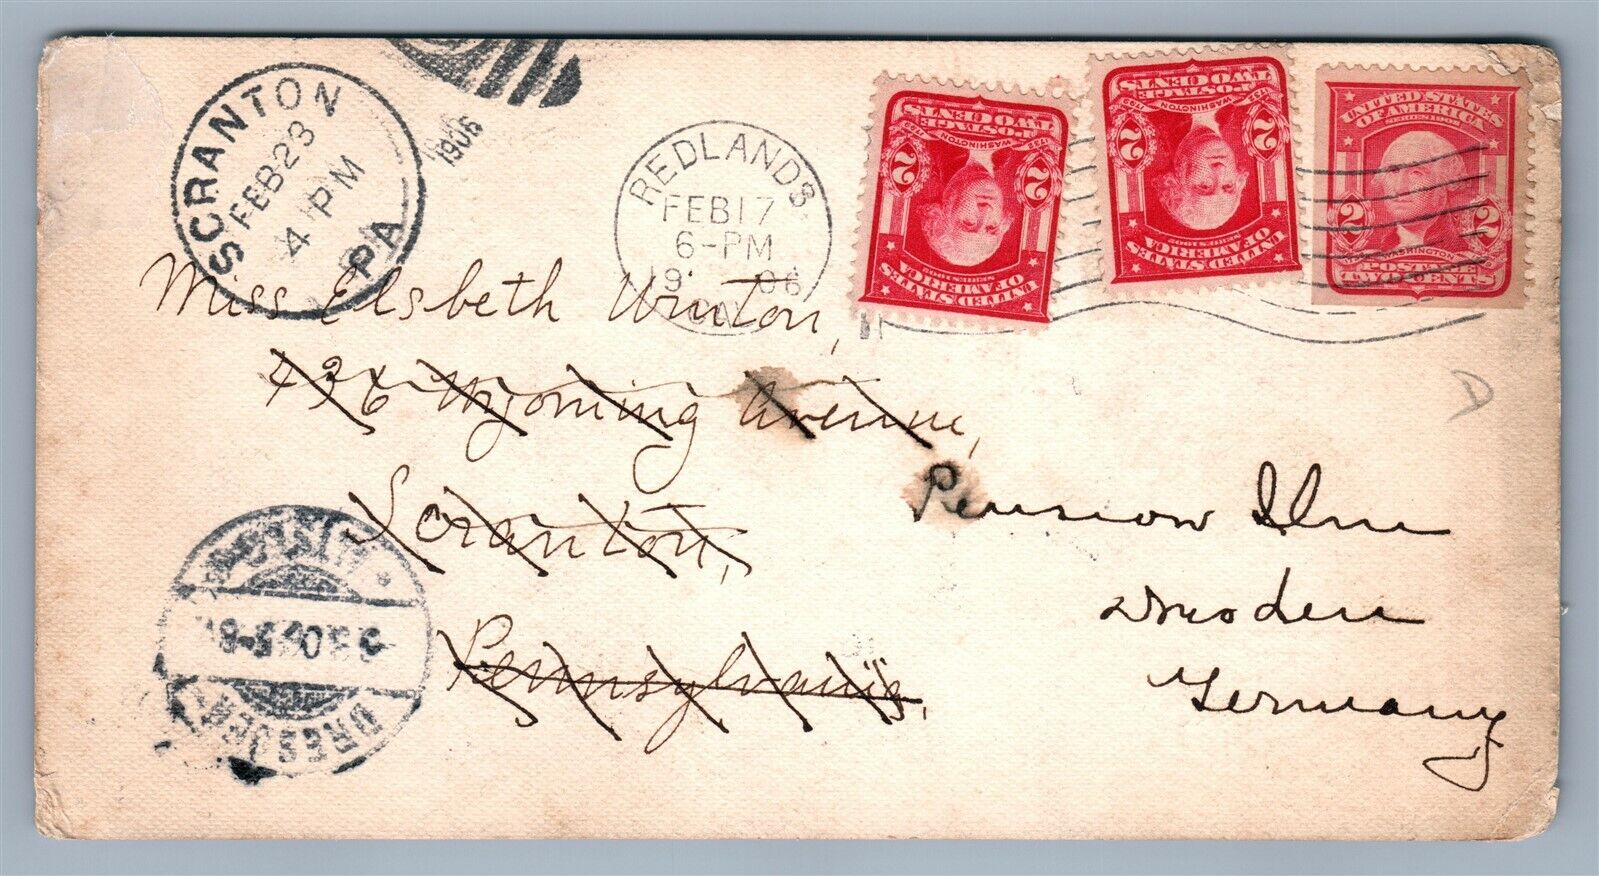 SCRANTON
FEB 23
4 PM
PA
1906
REDLANDS
FEB 17
6-PM
1906
CAL
UNITED STATES
OF AMERICA
SERIES 1902
1732 WASHINGTON 1799
2 2
POSTAGE
TWO CENTS
UNITED STATES
OF AMERICA
SERIES 1902
1732 WASHINGTON 1799
2 2
POSTAGE
TWO CENTS
UNITED STATES
OF AMERICA
SERIES 1902
WASHINGTON
2 2
POSTAGE
TWO CENTS
Miss Elsbeth Winton,
436 Wyoming Avenue,
Scranton,
Pennsylvania,
D
Pension
Dresden
Germany
ALTST.
DRESDEN